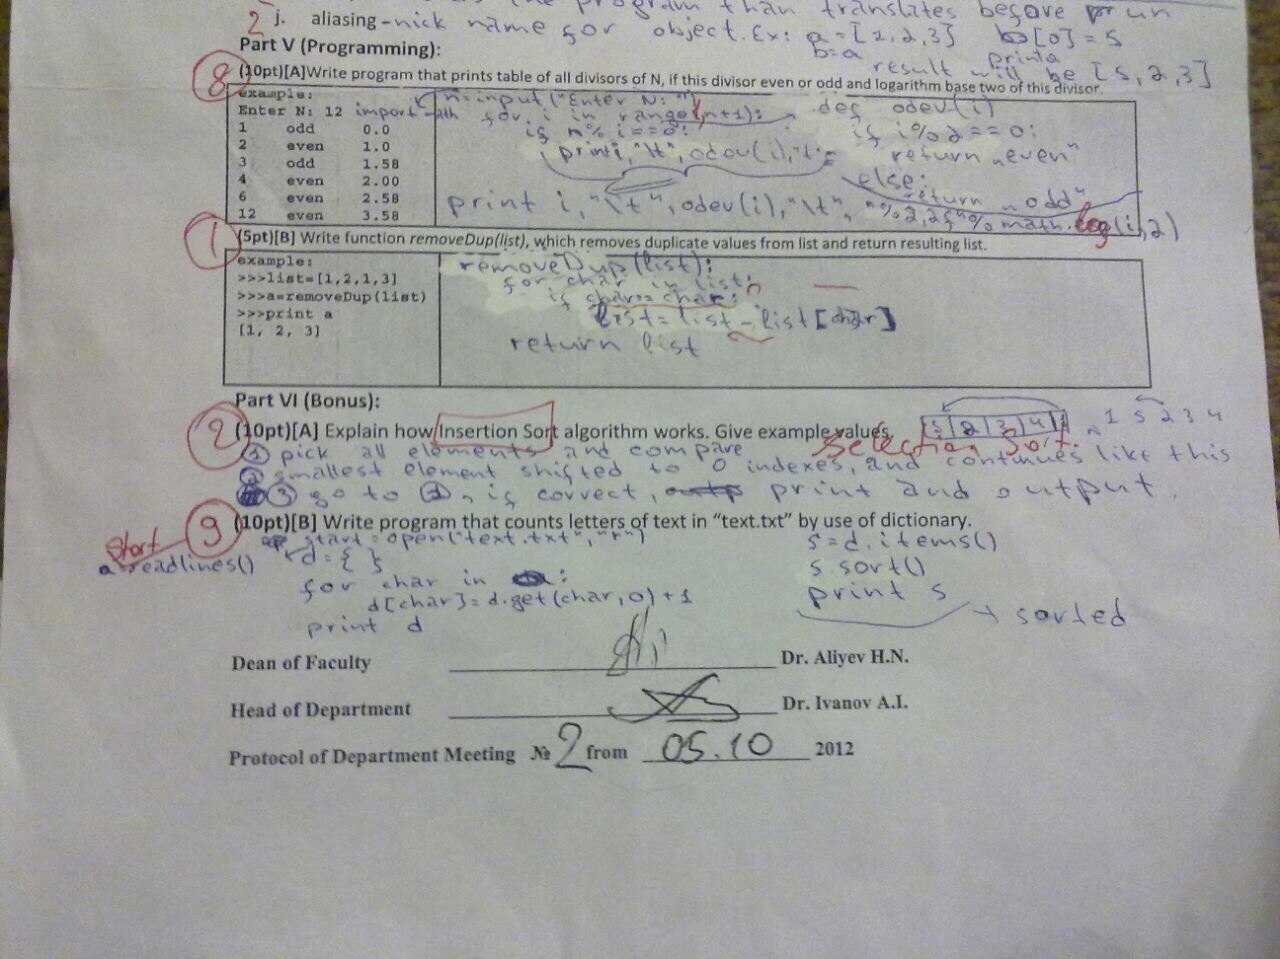 the program than translates before run
2 j. aliasing - nick name for object. Ex: a = [1, 2, 3] b[0] = 5
b=a print a
result will be [5, 2, 3]
Part V (Programming):
8
(10pt)[A]Write program that prints table of all divisors of N, if this divisor even or odd and logarithm base two of this divisor.
example:
Enter N: 12
1 odd 0.0
2 even 1.0
3 odd 1.58
4 even 2.00
6 even 2.58
12 even 3.58
import math
n=input("Enter N: ")
for i in range(1,n+1):
if n% i==0:
print i, "\t", odev(i), "\t"
print i, "\t", odev(i), "\t", "%2.2f"%math.log(i,2)
def odev(i)
if i%2==0:
return "even"
else:
return "odd"
1
(5pt)[B] Write function removeDup(list), which removes duplicate values from list and return resulting list.
example:
>>>list=[1,2,1,3]
>>>a=removeDup(list)
>>>print a
[1, 2, 3]
removeDup(list):
for char in list:
if char== char:
list= list - list[char]
return list
Part VI (Bonus):
2
(10pt)[A] Explain how Insertion Sort algorithm works. Give example values.
5|2|3|4|1 1 5 2 3 4
Selection Sort.
① pick all elements and compare
② smallest element shifted to 0 indexes, and continues like this
③ go to ②, if correct, print and output.
9
(10pt)[B] Write program that counts letters of text in “text.txt” by use of dictionary.
start = open("text.txt","r")
start
a=readlines()
d={ }
for char in a:
d[char]=d.get(char,0)+1
print d
s=d.items()
s.sort()
print s
→ sorted
Dean of Faculty Dr. Aliyev H.N.
Head of Department Dr. Ivanov A.I.
Protocol of Department Meeting № 2 from 05.10 2012